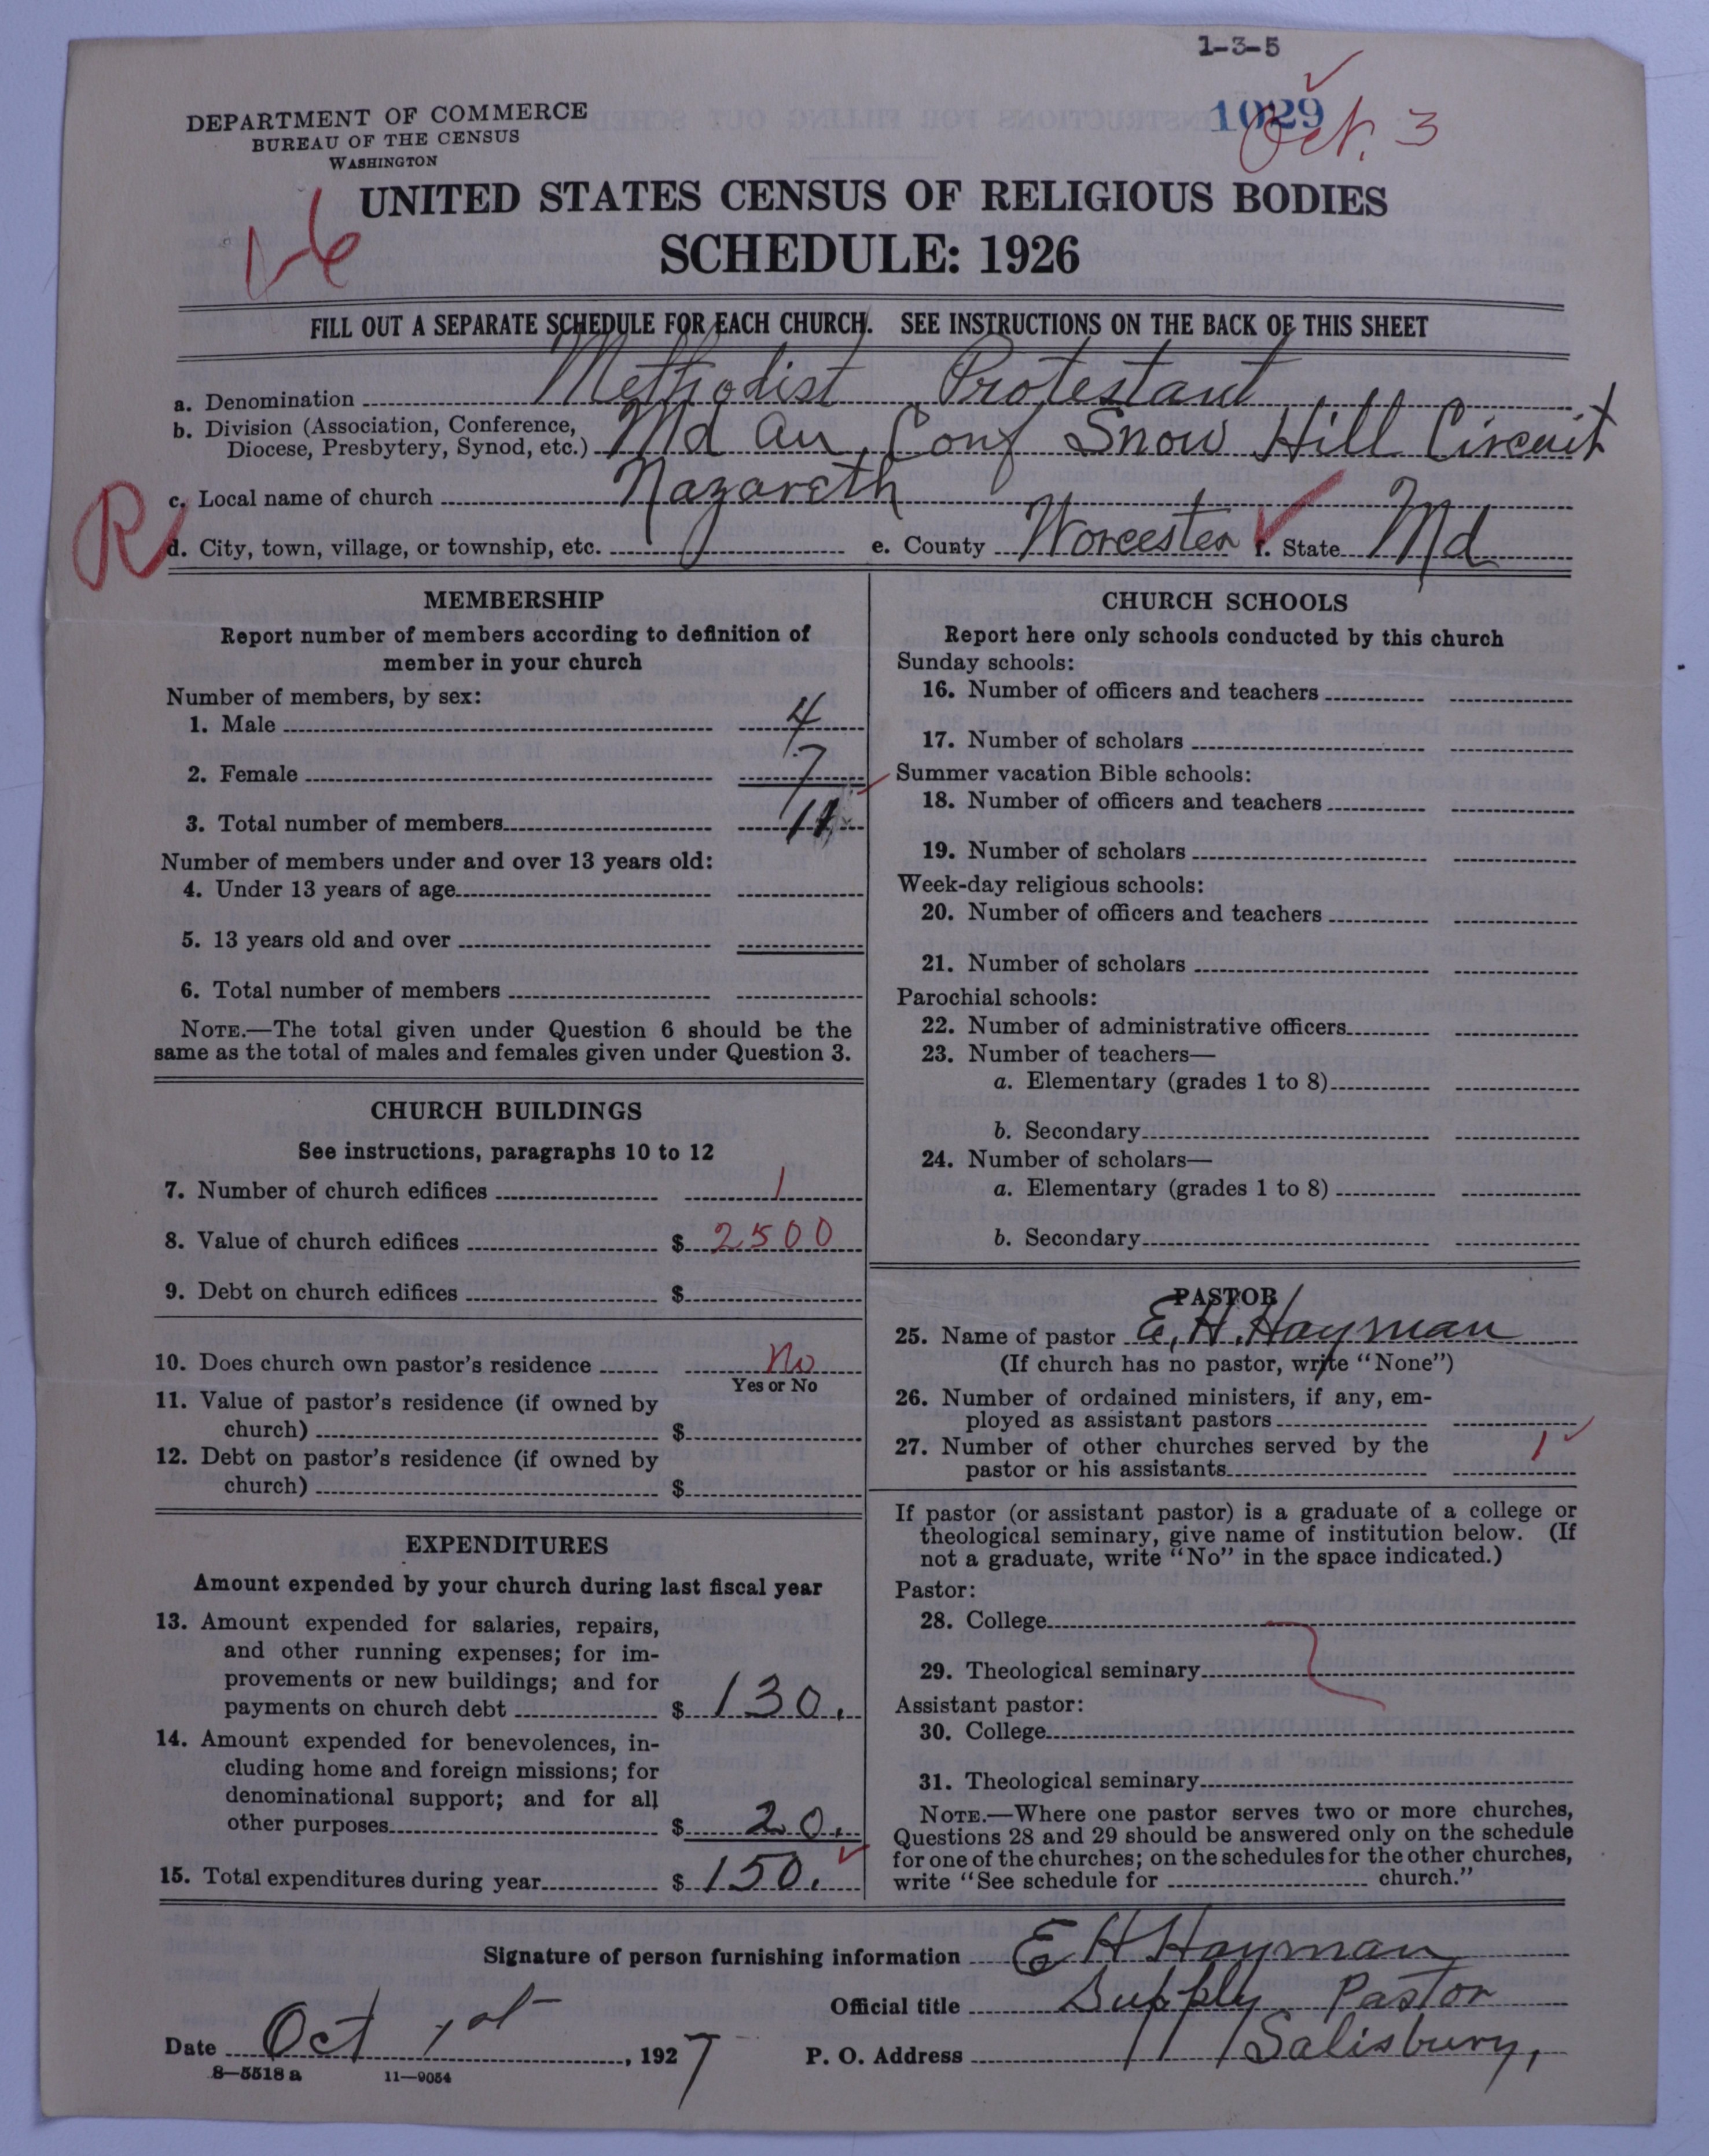 1-3-5
DEPARTMENT OF COMMERCE
BUREAU OF THE CENSUS
WASHINGTON
1029
Oct. 3
UNITED STATES CENSUS OF RELIGIOUS BODIES
SCHEDULE: 1926
FILL OUT A SEPARATE SCHEDULE FOR EACH CHURCH. SEE INSTRUCTIONS ON THE BACK OF THIS SHEET
a. Denomination Methodist Protestant
b. Division (Association, Conference,
Diocese, Presbytery, Synod, etc.) Md An Conf Snow Hill Circuit
R
c. Local name of church Nazareth
d. City, town, village, or township, etc. e. County Worcester f. State Md
MEMBERSHIP
Report number of members according to definition of
member in your church
Number of members, by sex:
1. Male 4
2. Female 7
3. Total number of members 11
Number of members under and over 13 years old:
4. Under 13 years of age
5. 13 years old and over
6. Total number of members
NOTE.—The total given under Question 6 should be the
same as the total of males and females given under Question 3.
CHURCH BUILDINGS
See instructions, paragraphs 10 to 12
7. Number of church edifices 1
8. Value of church edifices $ 2500
9. Debt on church edifices $
10. Does church own pastor's residence No
Yes or No
11. Value of pastor's residence (if owned by
church) $
12. Debt on pastor's residence (if owned by
church) $
EXPENDITURES
Amount expended by your church during last fiscal year
13. Amount expended for salaries, repairs,
and other running expenses; for im-
provements or new buildings; and for
payments on church debt $ 130.
14. Amount expended for benevolences, in-
cluding home and foreign missions; for
denominational support; and for all
other purposes $ 20.
15. Total expenditures during year $ 150.
CHURCH SCHOOLS
Report here only schools conducted by this church
Sunday schools:
16. Number of officers and teachers
17. Number of scholars
Summer vacation Bible schools:
18. Number of officers and teachers
19. Number of scholars
Week-day religious schools:
20. Number of officers and teachers
21. Number of scholars
Parochial schools:
22. Number of administrative officers
23. Number of teachers—
a. Elementary (grades 1 to 8)
b. Secondary
24. Number of scholars—
a. Elementary (grades 1 to 8)
b. Secondary
PASTOR
25. Name of pastor E. H. Hayman
(If church has no pastor, write "None")
26. Number of ordained ministers, if any, em-
ployed as assistant pastors
27. Number of other churches served by the
pastor or his assistants 1
If pastor (or assistant pastor) is a graduate of a college or
theological seminary, give name of institution below. (If
not a graduate, write "No" in the space indicated.)
Pastor:
28. College
29. Theological seminary
Assistant pastor:
30. College
31. Theological seminary
NOTE.—Where one pastor serves two or more churches,
Questions 28 and 29 should be answered only on the schedule
for one of the churches; on the schedules for the other churches,
write "See schedule for church."
Signature of person furnishing information E H Hayman
Official title Supply Pastor
Date Oct 1st, 1927 P. O. Address Salisbury,
8—5518 a 11—9054